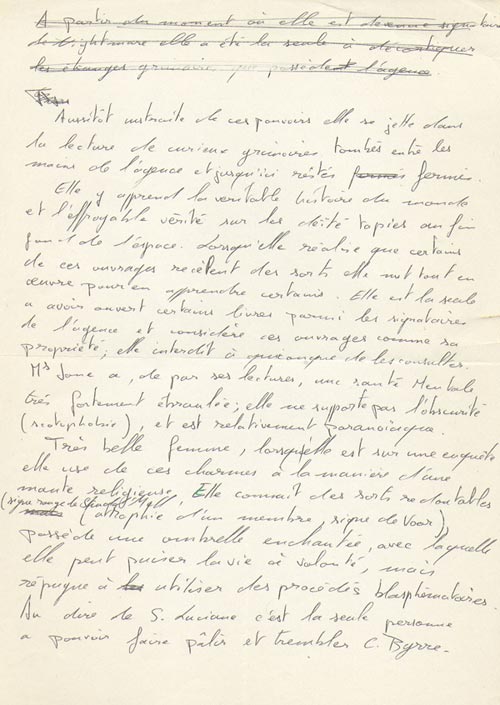 A partir du moment où elle est devenue signataire
de Nightmare elle a été la seule à décortiquer
les étranges grimoires que possédait l'agence.
Aussitôt instruite de ces pouvoirs elle se jette dans
la lecture de curieux grimoires tombés entre les
mains de l'agence et jusqu'ici restés fermés.
Elle y apprend la veritable histoire du monde
et l'effroyable vérité sur les déité tapies au fin
fond de l'espace. Lorsqu'elle réalise que certains
de ces ouvrages recèlent des sorts elle met tout en
œuvre pour en apprendre certains. Elle est la seule
a avoir ouvert certains livres parmi les signataires
de l'agence et considère ces ouvrages comme sa
propriété; elle interdit à quiconque de les consulter.
Ms Jane a, de par ses lectures, une santé Mentale
très fortement ébranlée; elle ne supporte pas l'obscurité
(scotophobie), et est relativement paranoïaque.
Très belle femme, lorsqu'elle est sur une enquête
elle use de ces charmes à la manière d'une
mante religieuse. Elle connait des sorts redoutables
(signe rouge de Shudde M'ell
(atrophie d'un membre, signe de Voor),
possède une ombrelle enchantée, avec laquelle
elle peut puiser la vie à volonté, mais
répugne à utiliser des procédés blasphématoires.
Au dire de S. Luciane c'est la seule personne
a pouvoir faire pâlir et trembler C. Byrre.